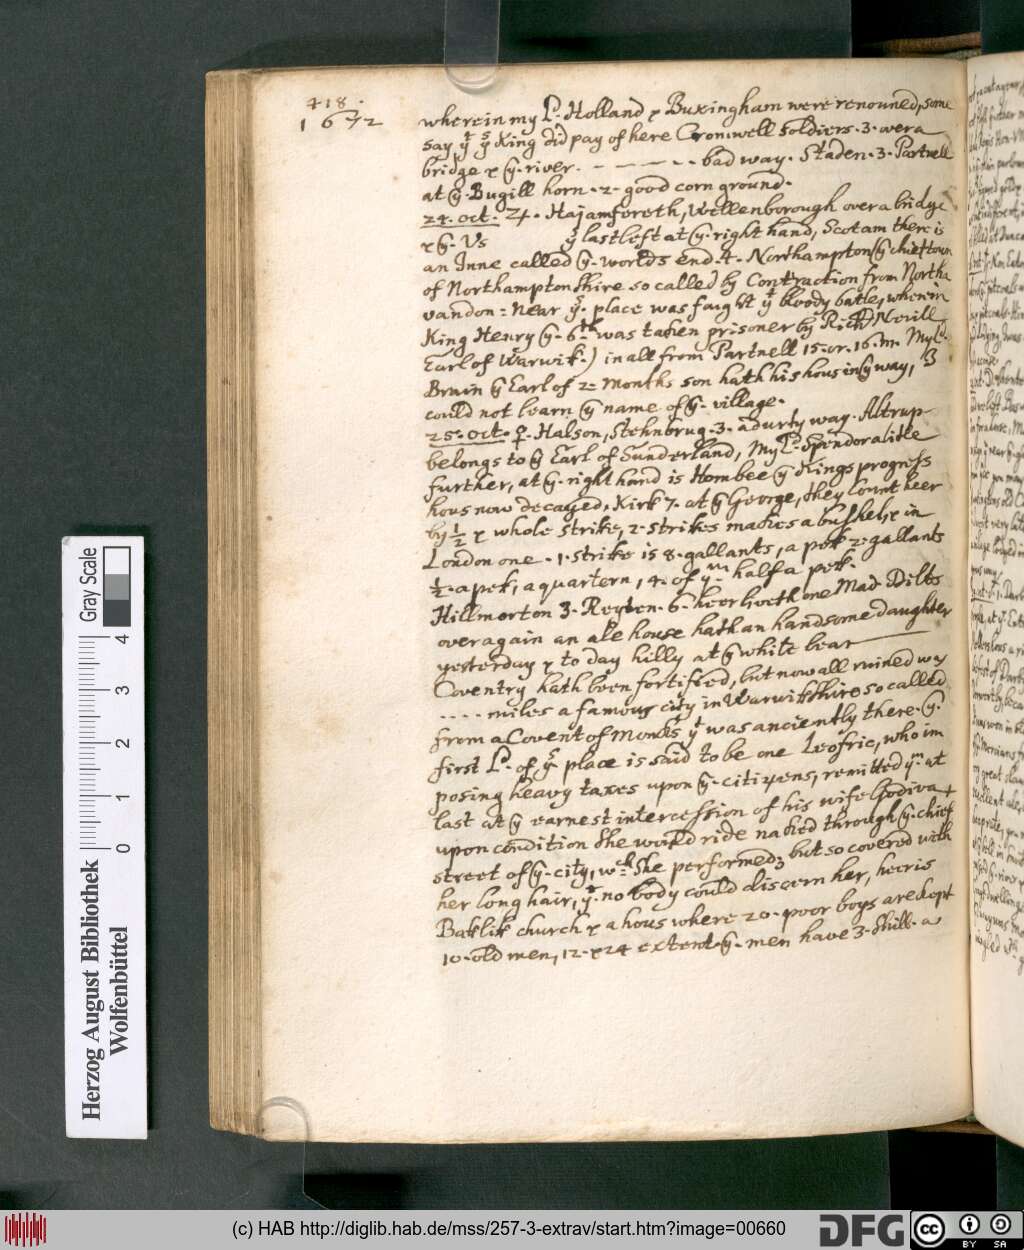 418.
1672
wherein my Lᵈ. Holland & Buxingham were renouned, some
say yᵗ yᵉ King did pay of here Cromwell Soldiers. 3. over a
bridge & yᵉ. river. - — — — - - bad way. Staden. 3. Partnell
at yᵉ. Bugill horn. 2. good corn ground.
24. oct. ♃. Hajamforeth, Wellenborough over a bridge
& yᵉ. Vs yᵗ last left at yᵉ. right hand, Scotam there is
an Inne called yᵉ. worlds end. 4. Northampton (yᵉ chief town
of Northamptonshire so called by Contraction from Northa
vandon: Near yˢ. place was faight yᵗ bloody batle, wherein
King Henry yᵉ. 6ᵗʰ was taken prisoner by Richᵈ Nevill
Earl of Warwik.) in all from Partnell 15. or. 16. m. My Lᵈ.
Bruin yᵉ Earl of 2. Months son hath his hous in yᵉ way, I
could not learn yᵉ name of yᵉ. village.
25. oct. ♀. Halson, Stehnbrug. 3. a durty way. Altrup
belongs to yᵉ Earl of Sunderland, My Lᵈ. Spendora litle
further, at yᵉ. right hand is Hombee yᵉ Kings progress
hous now decayed. Kirk 7. at yᵉ George, they count heer
by ½ & whole Strike, 2. Strikes makes a bushel, & in
London one. 1. Strike is 8. gallants, a pek 2. gallants
½. a pek, a quartern, 4. of yᵐ half a pek.
Hillmorton 3. Reyten. 6. heer liveth one Mad. Dilbs
over again an ale house hath an handsome daughter
yesterday & to day hilly at yᵉ white bear ———
Coventry hath been fortified, but now all ruined
.... miles a famous city in Warwikshire so called
from a Covent of Monks yᵗ was anciently there. yᵉ.
first Lᵈ. of yˢ place is said to be one Leofric, who im
posing heavy taxes upon yᵉ. citizens, remitted yᵐ. at
last at yᵉ earnest intercession of his wife Godiva
upon condition She would ride naked through yᵉ. chief
street of yᵉ. city, wᶜʰ She performed; but so covered with
her long hair, yᵗ. no body could discern her, heer is
Bablik church & a hous where 20. poor boys are kept
10. old men, 12. & 24 extent yᵉ. men have 3. Shill. a
Herzog August Bibliothek
Wolfenbüttel
Gray Scale
0 1 2 3 4
(c) HAB http://diglib.hab.de/mss/257-3-extrav/start.htm?image=00660
DFG
cc BY SA